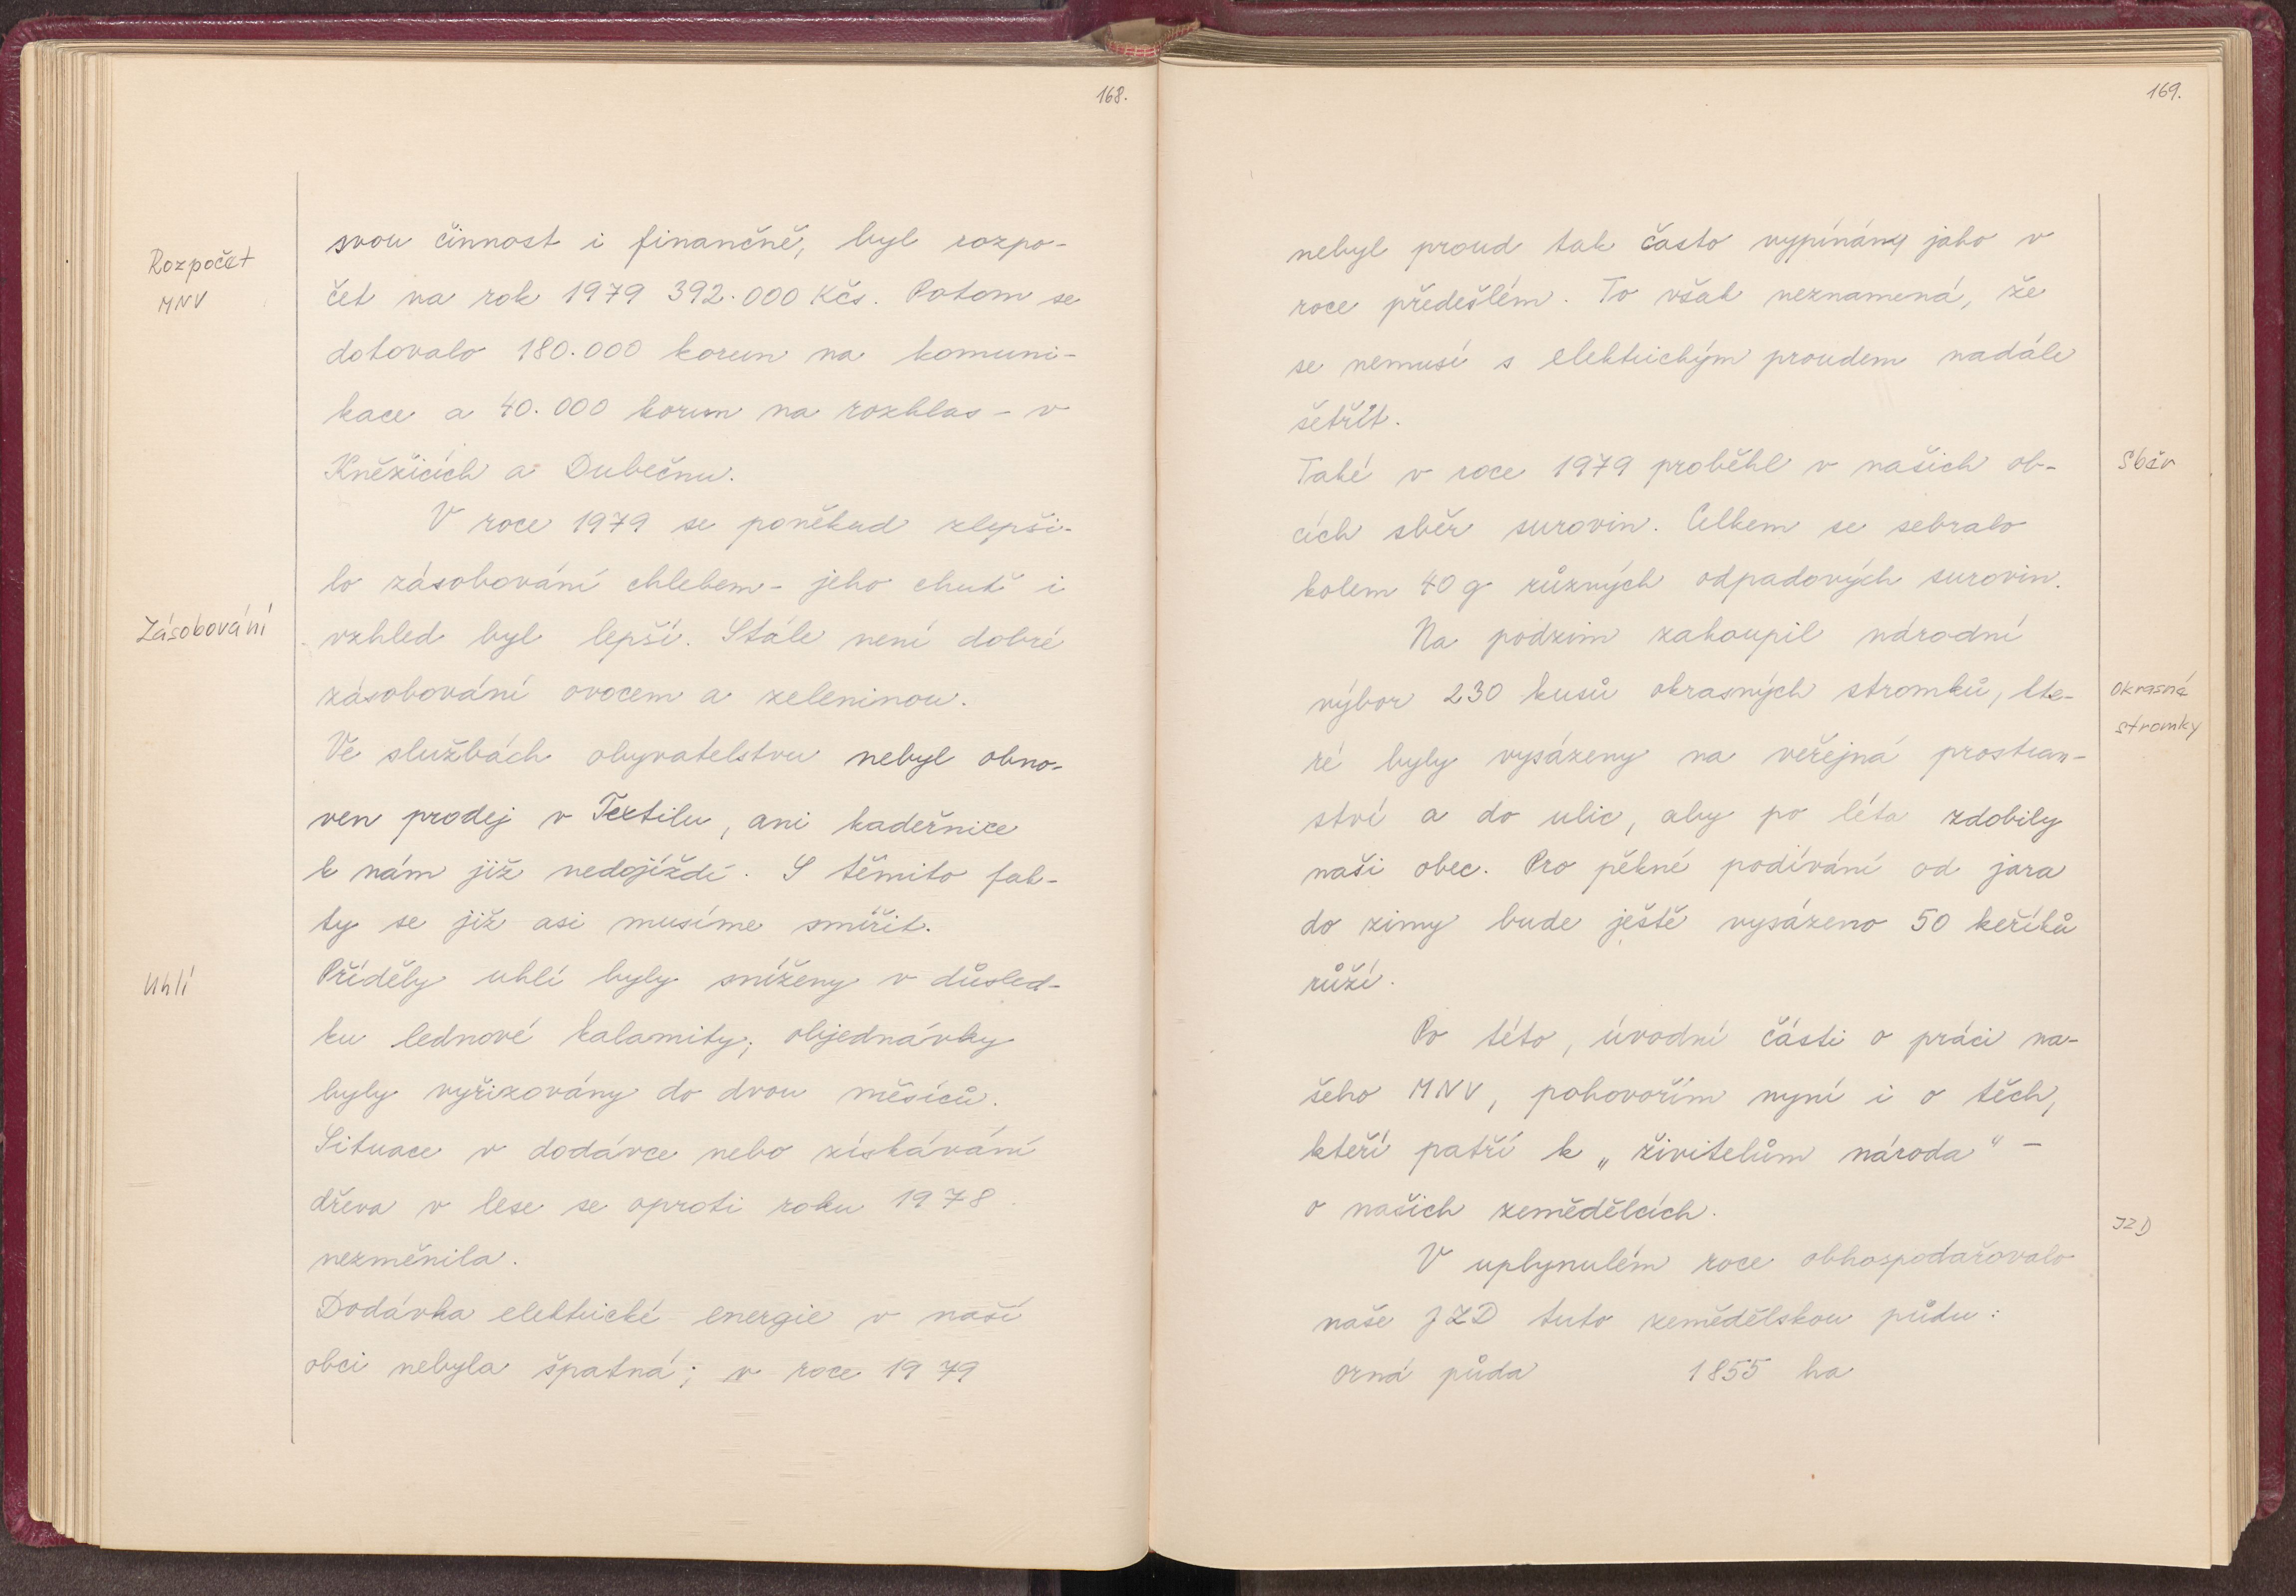 168.
Rozpočet
MNV
svou činnost i finančně, byl rozpo-
čet na rok 1979 392.000 Kčs. Potom se
dotovalo 180.000 korun na komuni-
kace a 40.000 korun na rozhlas - v
Kněžicích a Dubečnu.
V roce 1979 se poněkud zlepši-
lo zásobování chlebem - jeho chuť i
Zásobování
vzhled byl lepší. Stále není dobré
zásobování ovocem a zeleninou.
Ve službách obyvatelstvu nebyl obno-
ven prodej v Textilu, ani kadeřnice
k nám již nedojíždí. S těmito fak-
ty se již asi musíme smířit.
Uhlí
Příděly uhlí byly sníženy v důsled-
ku lednové kalamity; objednávky
byly vyřizovány do dvou měsíců.
Situace v dodávce nebo získávání
dřeva v lese se oproti roku 1978
nezměnila.
Dodávka elektrické energie v naší
obci nebyla špatná; v roce 1979
169.
nebyl proud tak často vypínány jako v
roce předešlém. To však neznamená, že
se nemusí s elektrickým proudem nadále
šetřit.
Také v roce 1979 proběhl v našich ob-
Sběr
cích sběr surovin. Celkem se sebralo
kolem 40 q různých odpadových surovin.
Na podzim zakoupil národní
výbor 230 kusů okrasných stromků, kte-
Okrasné
stromky
ré byly vysázeny na veřejná prostran-
ství a do ulic, aby po léta zdobily
naši obec. Pro pěkné podívání od jara
do zimy bude ještě vysázeno 50 keříků
růží.
Po této, úvodní části o práci na-
šeho MNV, pohovořím nyní i o těch,
kteří patří k „živitelům národa" -
o našich zemědělcích.
JZD
V uplynulém roce obhospodařovalo
naše JZD tuto zemědělskou půdu:
orná půda 1855 ha